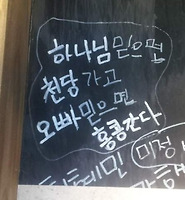 하나님 믿으면
천당 가고
오빠 믿으면
홍콩간다
미정